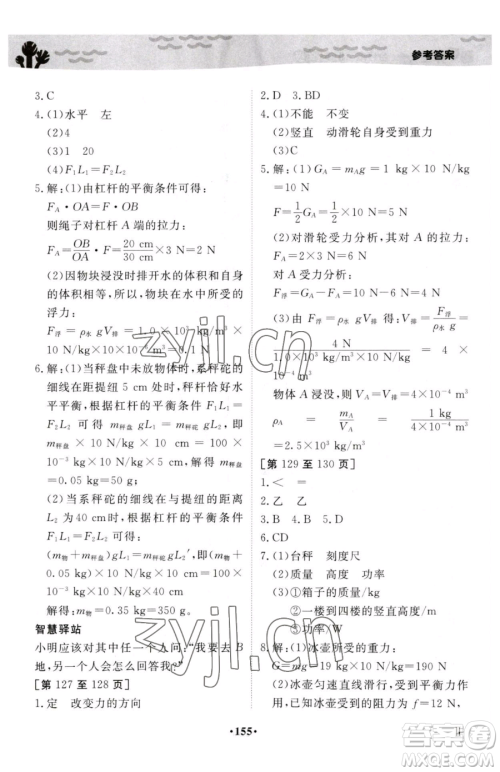 参考答案
3. C
4. (1)水平 左
(2)4
(3)1 20
(4)F₁L₁=F₂L₂
5. 解：(1)由杠杆的平衡条件可得：
F_A·OA=F·OB
则绳子对杠杆 A 端的拉力：
F_A=OB/OA·F=20 cm/30 cm×3 N=2 N
(2)因物块浸没时排开水的体积和自身的体积相等，
所以，物块在水中所受的
浮力：
F浮=ρ水 gV排=1.0×10³ kg/m³×
10 N/kg×10×10⁻⁶ m³=0.1 N
6. 解：(1)当秤盘中未放物体时，秤砣的
细线在距提纽 5 cm 处时，秤杆在水
平平衡，根据杠杆的平衡条件 F₁L₁=
F₂L₂ 可得：m秤盘 gL₁=m秤砣gL₂，即
m秤盘×10 N/kg×10 cm=100×
10⁻³ kg×10 N/kg×5 cm，解得：
m秤盘=0.05 kg=50 g；
(2)当秤砣的细线在与提纽的距离
为 40 cm 时，根据杠杆的平衡条件
F₁L₁=F₂L₂ 可得：
(m物+m秤盘)gL₁=m秤砣gL₂′，即(m物+
0.05 kg)×10 N/kg×10 cm=100×
10⁻³ kg×10 N/kg×40 cm，
解得：m物=0.35 kg=350 g。
智慧驿站
小明应该对其中任一个人问：“我要去 B
地，另一个人会怎么回答我？”
[第 127 至 128 页]
1. 定 改变力的方向
2. D 3. BD
4. (1)不能 不变
(2)竖直 动滑轮自身受到重力
(3)C
5. 解：(1)G_A=m_A g=1 kg×10 N/kg
=10 N
F=1/2 G_A=1/2×10 N=5 N
(2)对滑轮受力分析，其对 A 的拉力
F_A=2F=2×3 N=6 N
对 A 受力分析：
F浮=G_A−F_A=10 N−6 N=4 N
(3)由 F浮=ρ水 gV排 得：V排=F浮/ρ水 g
=4 N/1.0×10³ kg/m³×10 N/kg=4×10⁻⁴ m³
物体 A 浸没，则 V_A=V排=4×10⁻⁴ m³
ρ_A = m_A/V_A = 1 kg/4×10⁻⁴ m³ =
2.5×10³ kg/m³
[第 129 至 130 页]
1. < =
2. 乙 乙
3. B 4. B 5. B
6. CD
7. (1)台秤 刻度尺
(2)质量 高度 时间
(3)①箱子的质量/kg
②一楼到四楼的竖直高度/m
⑤功率/W
8. 解：(1)冰壶所受的重力 G=mg=
19 kg×10 N/kg=190 N
(2)冰壶受到的阻力为 f=12 N，
·155·
zyjl.cn
zyjl.cn